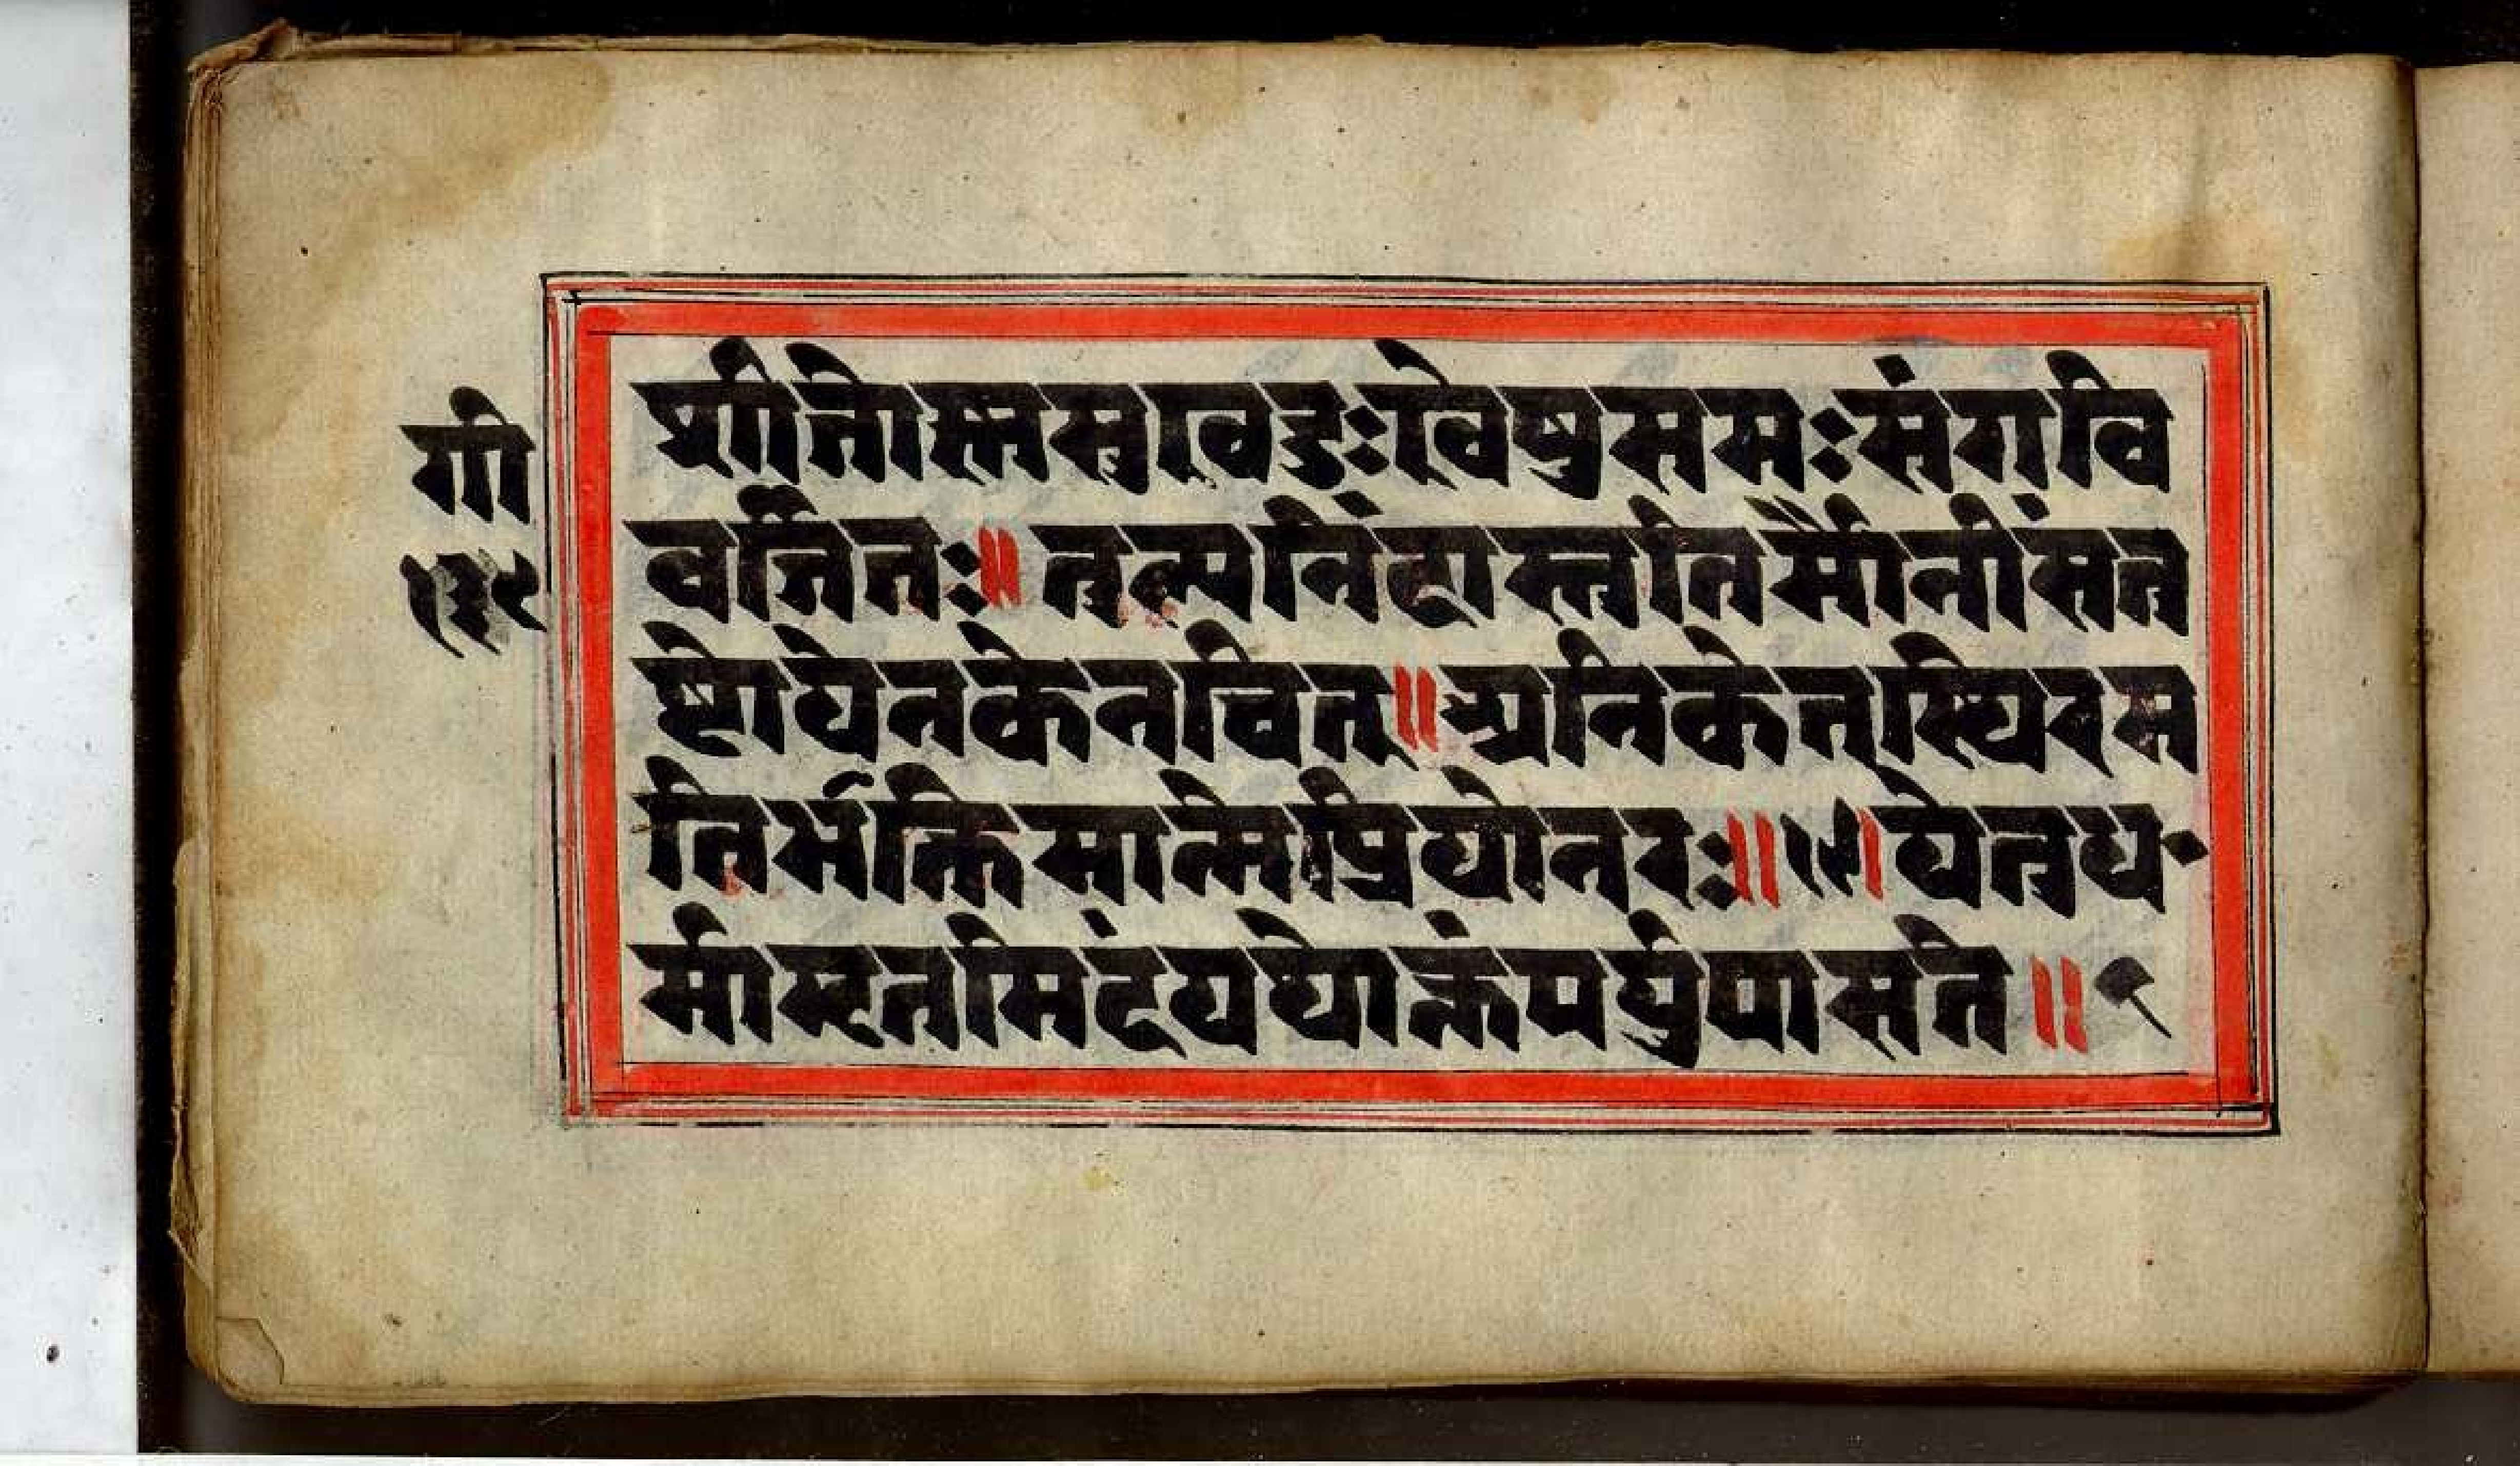 गी
१३९
शीतोस्नसुखदुःखेषुसमःसंगवि
वर्जितः॥तुल्यनिंदास्तुतिर्मौनीसंतु
ष्टोयेनकेनचित्॥अनिकेतस्थिरम
तिर्भक्तिमान्मेप्रियोनरः॥१९॥येतुध
र्मामृतमिदंयथोक्तंपर्युपासते॥